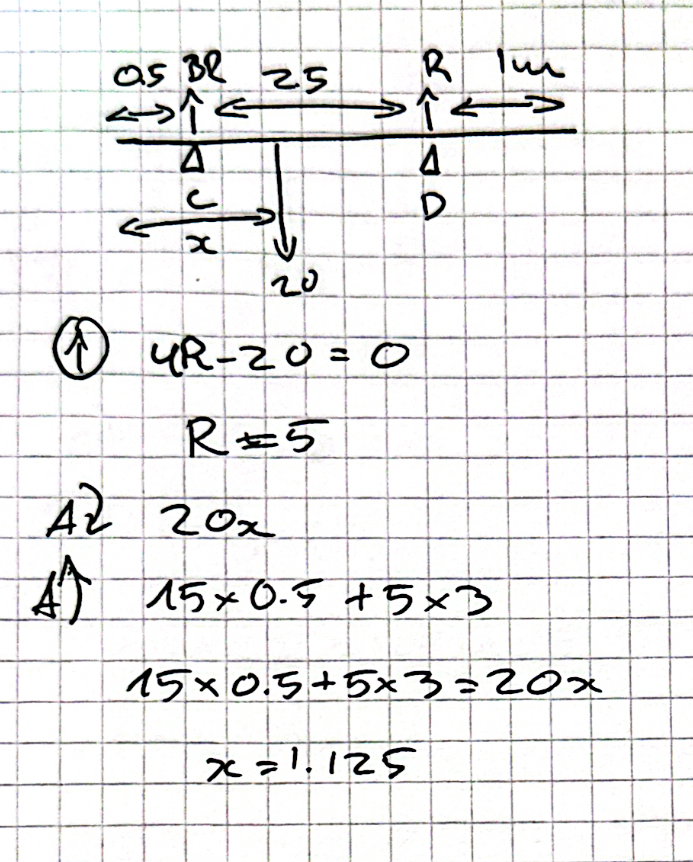 0.5 3R 2.5 R 1m
Δ Δ
C D
x
20
↑ 4R-20=0
R=5
A↷ 20x
A↶ 15×0.5+5×3
15×0.5+5×3=20x
x=1.125